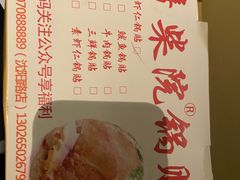 柴院®锅贴
虾仁锅贴
鲅鱼锅贴
牛肉锅贴
三鲜锅贴
素虾仁锅贴
码关注公众号享福利
070888889 (沈阳路店) 13026502679